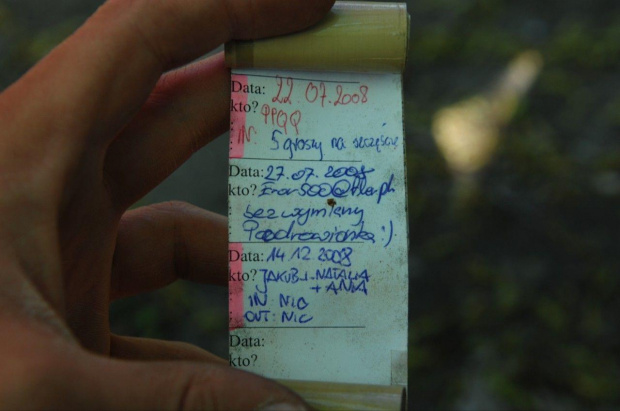 Data: 22.07.2008
kto? PPQQ
IN: 5 groszy na szczęście
Data: 27.07.2008
kto?
bez wymiany
Pozdrowionka :)
Data: 14 12 2008
kto? JAKUB J. NATALIA
+ ANIA
IN: NIC
OUT: NIC
Data:
kto?